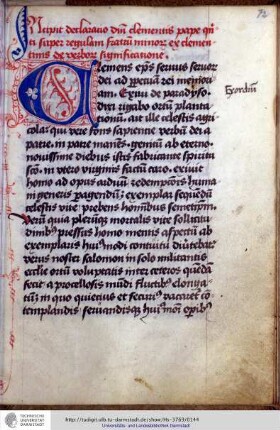 Incipit declaratio dñi clementis pape qñ
ti super regulam fratrū minorū ex clemen
tinis de verborū significatione .
Clemens ep̃s seruus seruorū
dei ad ppetuā rei memori
am . Exiui de paradyso .
dixi rigabo ortū planta
tionū . ait ille celestis agri
cola qui vere fons sapientie verbū dei a
patre . in patre manēs genitū ab eterno .
nouissime diebus istis fabricante spiritu
sco . in vtero virginis factū caro . exiuit
homo ad opus arduū . redemptōis huma
ni generis pagendū . exemplar sequēdū
celestis vite prebens hōmibus semetipm .
Verū quia plerūqz mortalis vite sollicitu
dinibus pressus homo mentis aspectū ab
exemplaris huiusmodi contuitu diuertebat .
verus noster salomon in solo militantis
ecclie ortū voluptatis inter ceteros quēdā
fecit . a procellosis mūdi fluctibus elonga
tū in quo quietius et securius vacaret cō
templandis seruandisqz huiusmodi operibus
Exordium
72
TECHNISCHE
UNIVERSITÄT
DARMSTADT
http://tudigit.ulb.tu-darmstadt.de/show/Hs-3763/0144
Universitäts- und Landesbibliothek Darmstadt